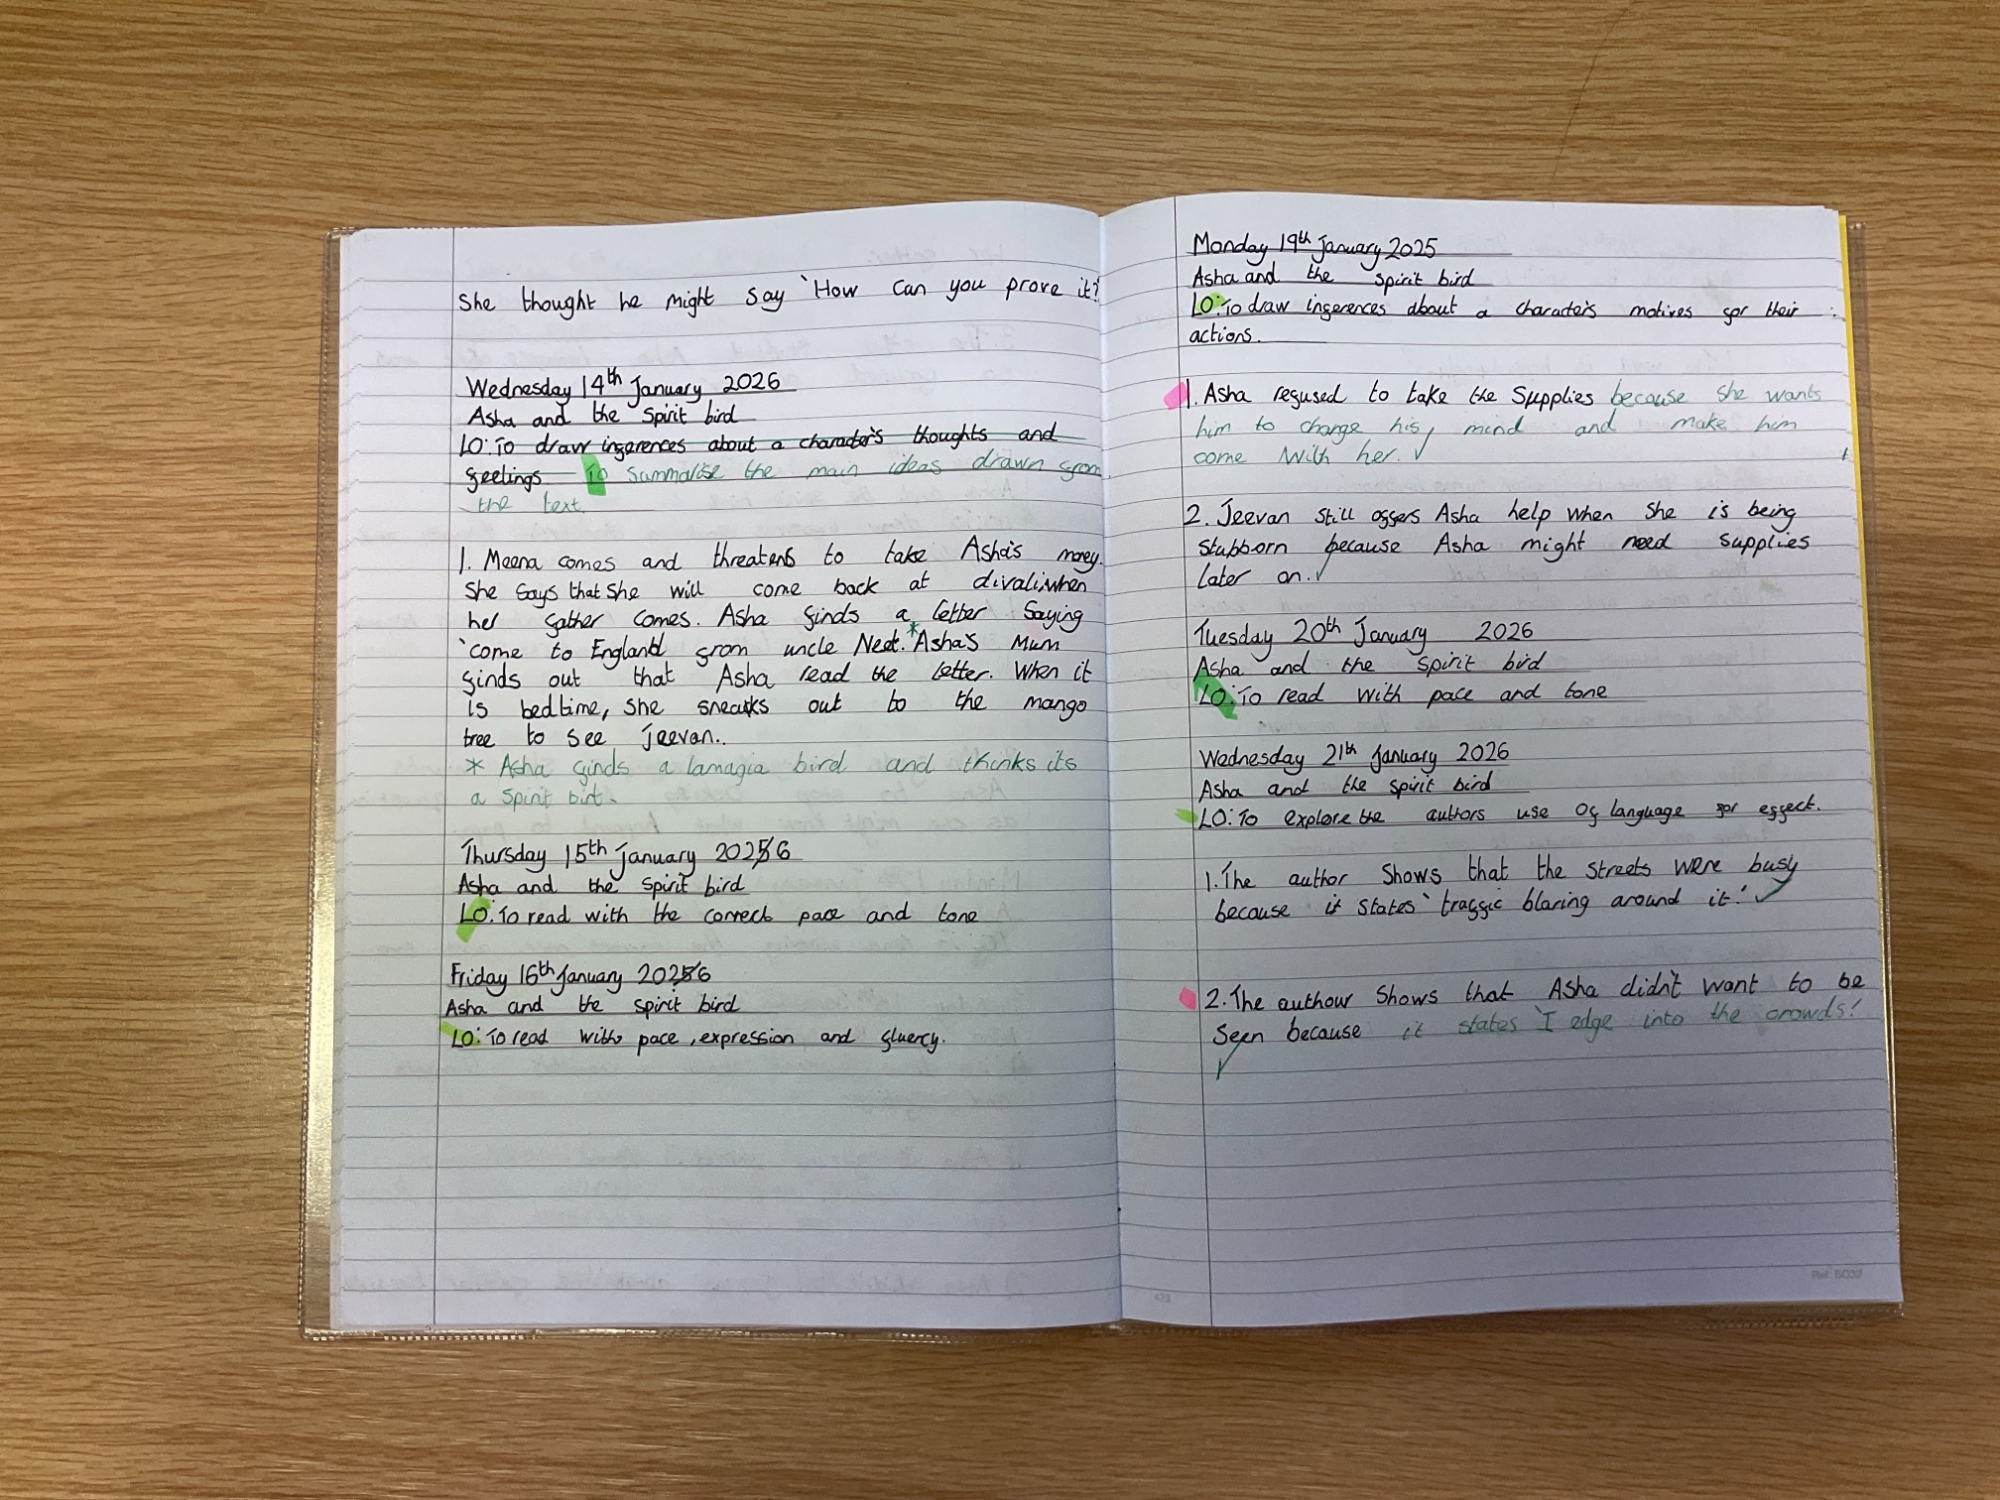 She thought he might say 'How can you prove it?
Wednesday 14th January 2026
Asha and the Spirit bird
LO: To draw inferences about a character's thoughts and
feelings To Summarise the main ideas drawn from
the text.
1. Meena comes and threatens to take Asha's money.
She says that she will come back at divali when
her father comes. Asha finds a letter saying
'come to England from uncle Neet.* Asha's Mum
finds out that Asha read the letter. When it
is bedtime, she sneaks out to the mango
tree to see Jeevan..
* Asha finds a lamagia bird and thinks its
a spirit birt.
Thursday 15th January 2026
Asha and the spirit bird
LO: To read with the correct pace and tone
Friday 16th January 2026
Asha and the spirit bird
LO: To read with pace, expression and fluency.
Monday 19th January 2025
Asha and the spirit bird
LO: To draw inferences about a character's motives for their
actions.
1. Asha refused to take the Supplies because she wants
him to change his mind and make him
come with her. ✓
2. Jeevan still offers Asha help when she is being
stubborn because Asha might need supplies
later on. ✓
Tuesday 20th January 2026
Asha and the spirit bird
LO: To read with pace and tone
Wednesday 21th January 2026
Asha and the spirit bird
LO: To explore the authors use of language for effect.
1. The author shows that the streets were busy
because it states 'traffic blaring around it.' ✓
2. The authour shows that Asha didn't want to be
seen because it states 'I edge into the crowds.'
✓
423